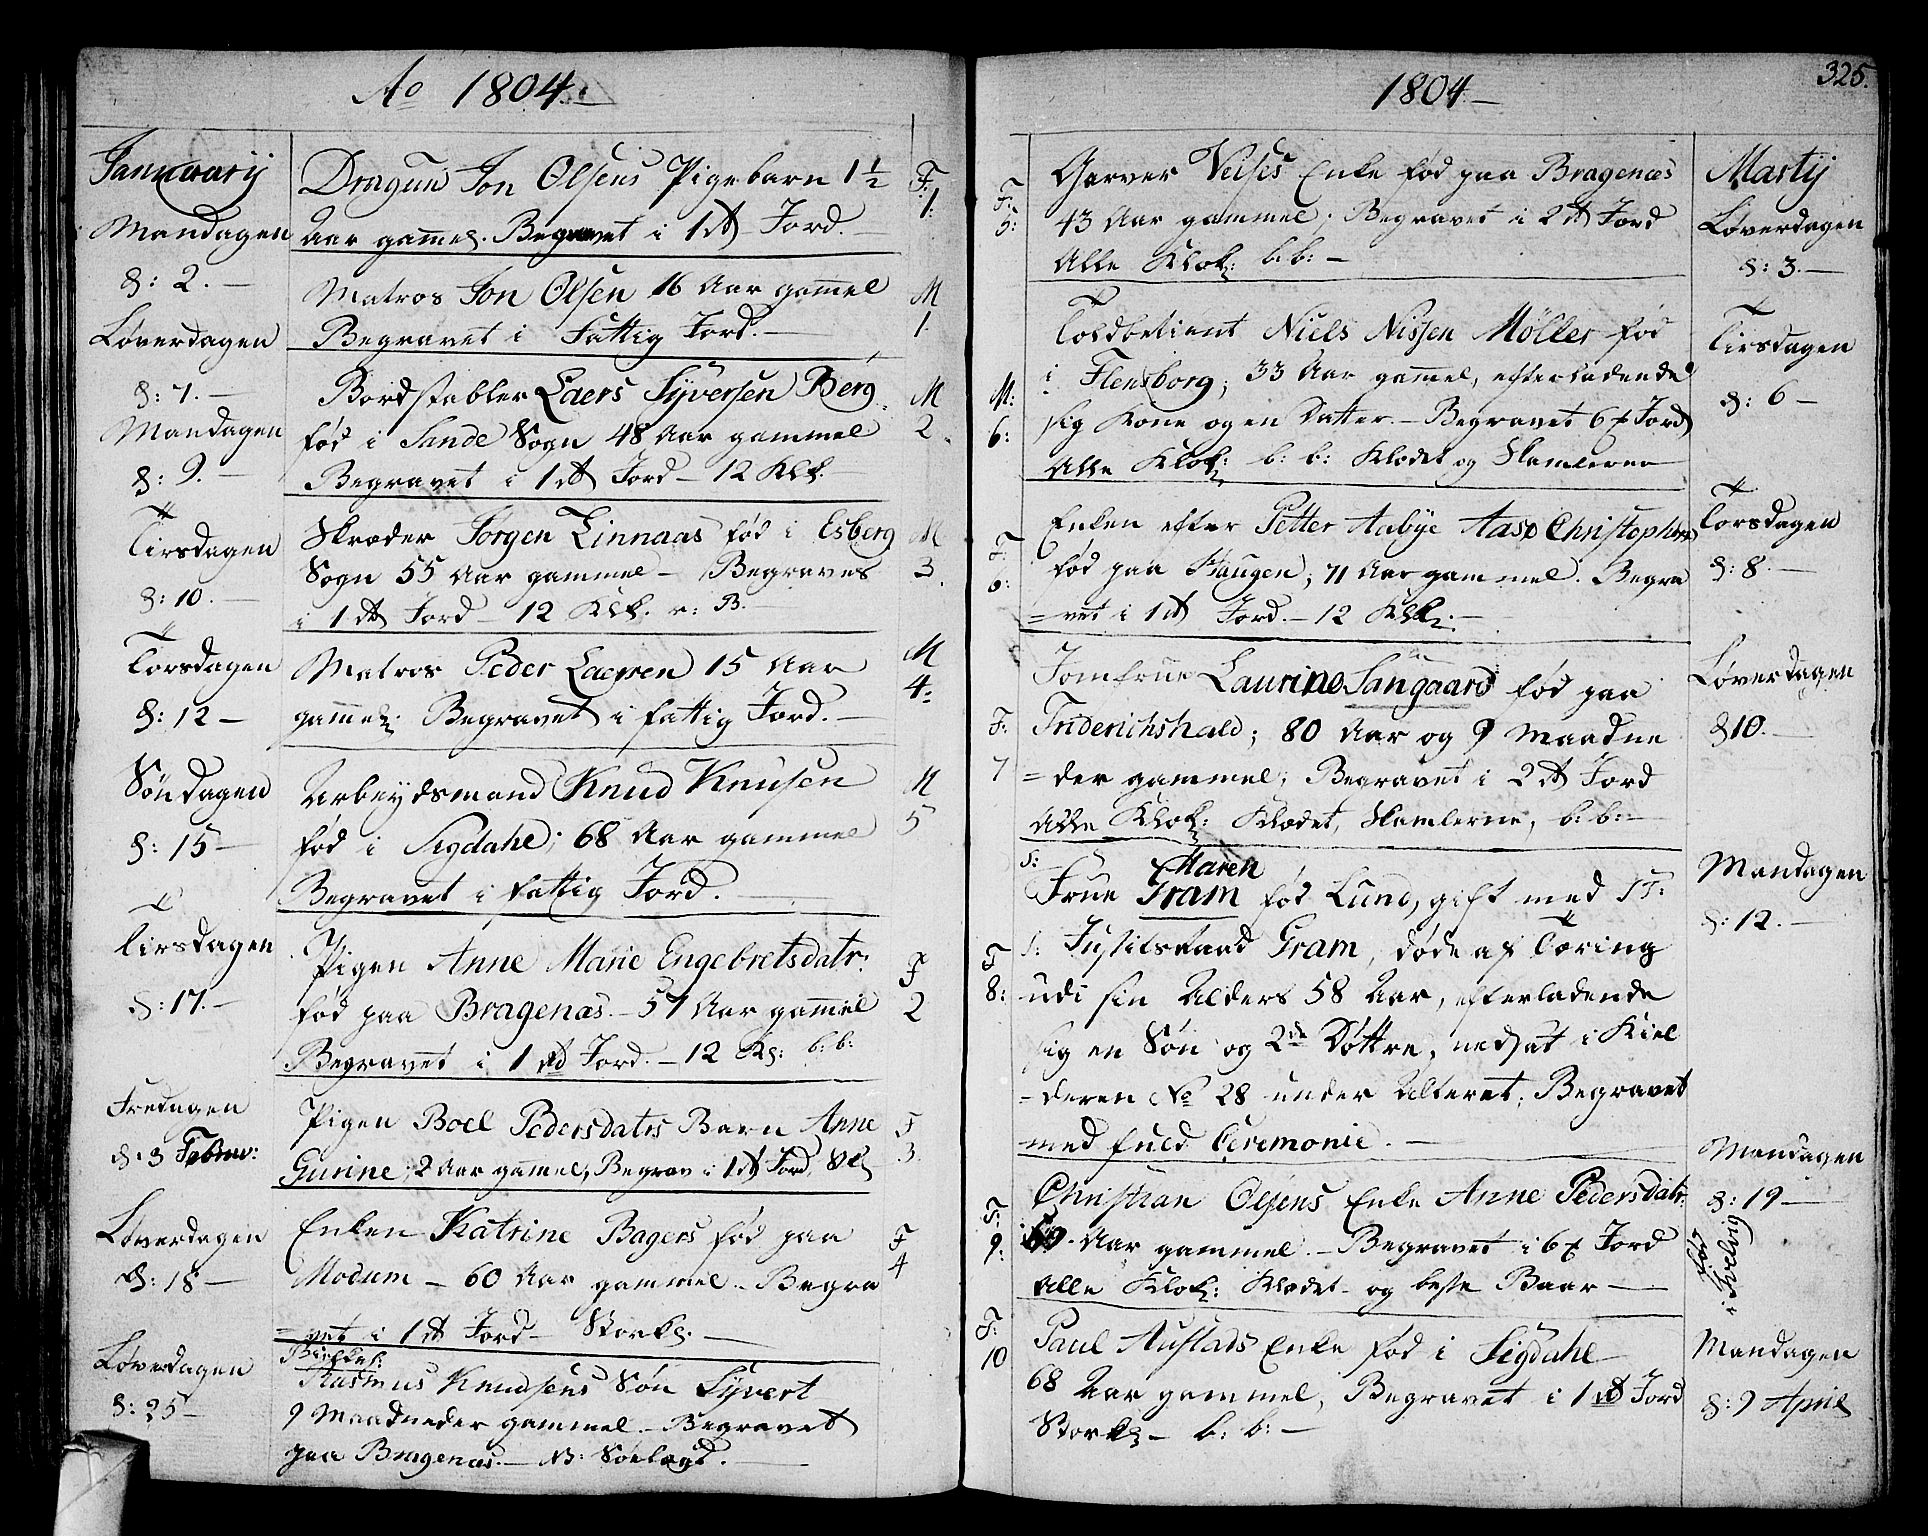 Ao 1804.
Januarij
Mandagen
d: 2.
Dragun Jon Olsens Pigebarn 1 1/2
Aar gamel. Begravet i 1st Jord.
F:
1:
Løverdagen
d: 7.
Matros Jon Olsen 16 Aar gamel
Begravet i Fattig Jord.
M
1.
Mandagen
d: 9.
Bordstabler Laers Syversen Berg
fød i Sande Sogn 48 Aar gammel
Begravet i 1st Jord - 12 Klk.
M
2.
Tirsdagen
d: 10.
Skræder Jørgen Linnaas fød i Esberg
Sogn 55 Aar gammel - Begraves
i 1st Jord - 12 Klk. n: B.
M
3.
Torsdagen
d: 12
Matros Peder Laersen 15 Aar
gammel. Begravet i fattig Jord.
M
4:
Søndagen
d: 15
Arbeydsmand Knud Knusen
fød i Sigdahl; 68 Aar gammel
Begravet i fattig Jord.
M
5
Tirsdagen
d: 17.
Pigen Anne Marie Engebretsdatr:
fød paa Bragenæs. - 57 Aar gamel
Begravet i 1st Jord. - 12 Kl: b: b:
F
2
Fredagen
d: 3 Febru:
Pigen Boel Pedersdatrs Barn Anne
Gurine, 2 Aar gamel, Begrav i 1st Jord,
F
3
Løverdagen
d: 18
Enken Katrine Bagers fød paa
Modum - 60 Aar gammel. Begra
=vet i 1st Jord - Storkl.
F
4
Løverdagen
d: 25
Rasmus Knudsens Søn Syvert
9 Maadneder gammel. - Begravet
paa Bragenæs. - NB: Sølagd.
1804
325.
F:
5:
Garver Veises Enke fød paa Bragenæs
43 Aar gammel; Begravet i 2st Jord
Alle Klok: b: b:
Martij
Løverdagen
d: 3.
M:
6:
Toldbetient Niels Nissen Møller fød
i Flensborg; 33 Aar gamel, efterladende
sig Kone og en Datter. - Begravet 6x Jord
Alle Klok: b: b: Klædet og Skamlerne
Tirsdagen
d: 6
F:
6:
Enken efter Petter Aabye Aase Christophers
fød paa Haugen; 71 Aar gammel. Begra
=vet i 1st Jord. - 12 Klk.
Torsdagen
d: 8.
F:
7
Jomfrue Laurine Sangaard fød paa
Friderichshald; 80 Aar og 9 Maadne
=der gammel; Begravet i 2st Jord
Alle Klok: Klædet, Skamlerne, b: b:
Løverdagen
d 10.
F
8:
S:
Maren
Frue Gram fød Lund, gift med ST:
S: Justitsraad Gram, døde af Tæring
udi sin Alders 58 Aar, efterladende
sig en Søn og 2de Døttre, nedsat i Kiel
=deren No 28 under Alteret; Begravet
med fuld Ceremonie.
Mandagen
d: 12.
F:
9:
Christian Olsens Enke Anne Pedersdatr:
Aar gammel. - Begravet i 6x Jord
Alle Klok: Klædet og beste Baar
Mandagen
d: 19
fød
i Svelvig
F:
10
Paul Austads Enke fød i Sigdahl
68 Aar gammel, Begravet i 1st Jord
Storkl - b: b:
Mandagen
d: 9 April